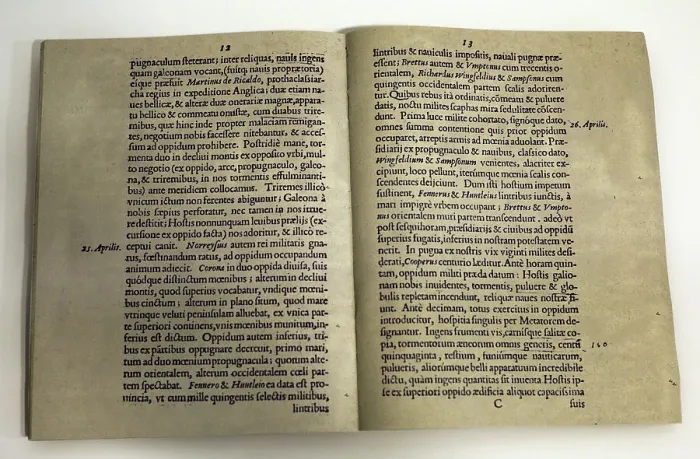 12
pugnaculum ſteterant; inter reliquas, nauis ingens
quam galeonam vocant, (fuitq, nauis prætoria)
eique præfuit Martinus de Ricaldo, prothaclaſsiar-
cha regius in expeditione Anglica; duæ etiam na-
ues bellicæ, & alteræ duæ onerariæ magnæ, appara-
tu bellico & commeatu onuſtæ, cum duabus trire-
mibus, quæ hinc inde propter malaciam remigan-
tes, negotium nobis faceſſere nitebantur, & acceſ-
ſum ad oppidum prohibere. Poſtridiè mane, tor-
menta duo in decliui montis ex oppoſito vrbi, mul-
to negotio (ex oppido, arce, propugnaculo, galeo-
na, & triremibus, in nos tormentis effulminanti-
bus) ante meridiem collocamus. Triremes illicò
vnicum ictum non ferentes abiguntur; Galeona à
nobis ſæpius perforatur, nec tamen in nos intue-
re deſtitit; Hoſtis nonnunquam leuibus præliis (ex-
curſione ex oppido facta) nos adoritur, & illicò re-
25. Aprilis. ceptui canit. Norreyſus autem rei militaris gna-
rus, fœſtinandum ratus, ad oppidum occupandum
animum adiecit. Corona in duo oppida diuiſa, ſuis
quódque diſtinctum mœnibus; alterum in decliui
montis, quod ſuperius vocabatur, vndique mœni-
bus cinctum; alterum in plano ſitum, quod mare
vtrinque veluti peninſulam alluebat, ex vnica par-
te ſuperiori continens, vnis mœnibus munitum, in-
ferius eſt dictum. Oppidum autem inferius, tri-
bus ex partibus oppugnare decreuit, primo mari,
tum ad duo mœnium propugnacula; quorum alte-
rum orientalem, alterum occidentalem cœli par-
tem ſpectabat. Fennero & Huntleio ea data eſt pro-
uincia, vt cum mille quingentis ſelectis militibus,
lintribus
13
lintribus & nauiculis impoſitis, nauali pugnæ præ-
eſſent; Brettus autem & Vmptonus cum trecentis o-
rientalem, Richardus Wingfeldius & Sampſonus cum
quingentis occidentalem partem ſcalis adoriren-
tur. Quibus rebus ità ordinatis, cōmeatu & puluere
datis, noctu milites ſcaphas mira ſedulitate cōſcen-
dunt. Prima luce milite cohortato, ſignóque dato, 26. Aprilis.
omnes ſumma contentione quis prior oppidum
occuparet, arreptis armis ad mœnia aduolant. Præ-
ſidiarij ex propugnaculo & nauibus, claſsico dato,
Wingfeldium & Sampſonum venientes, alacriter ex-
cipiunt, loco pellunt, iterùmque mœnia ſcalis con-
ſcendentes deijciunt. Dum iſti hoſtium impetum
ſuſtinent, Fennerus & Huntleius lintribus iunctis, à
mari impigrè vrbem occupant; Brettus & Vmpto-
nus orientalem muri partem tranſcendunt. adeò vt
poſt ſeſquihoram, præſidiariis & ciuibus ad oppidū
ſuperius fugatis, inferius in noſtram poteſtatem ve-
nerit. In pugna ex noſtris vix viginti milites deſi-
derati, Cooperus centurio læditur. Antè horam quin-
tam, oppidum militi præda datum: Hoſtis galio-
nam nobis inuidentes, tormentis, puluere & glo-
bulis repletam incendunt, reliquæ naues noſtræ fi-
unt. Antè decimam, totus exercitus in oppidum
introducitur, hoſpitia ſingulis per Metatorem de-
ſignantur. Ingens frumenti vis, carniſque ſalitæ co-
pia, tormentorum æneorum omnis generis, centū 150
quinquaginta, reſtium, funiúmque nauticarum,
pulueris, aliorúmque belli apparatuum incredibile
dictu, quàm ingens quantitas ſit inuenta. Hoſtis ip-
ſe ex ſuperiori oppido ædificia aliquot capaciſsima
C ſuis